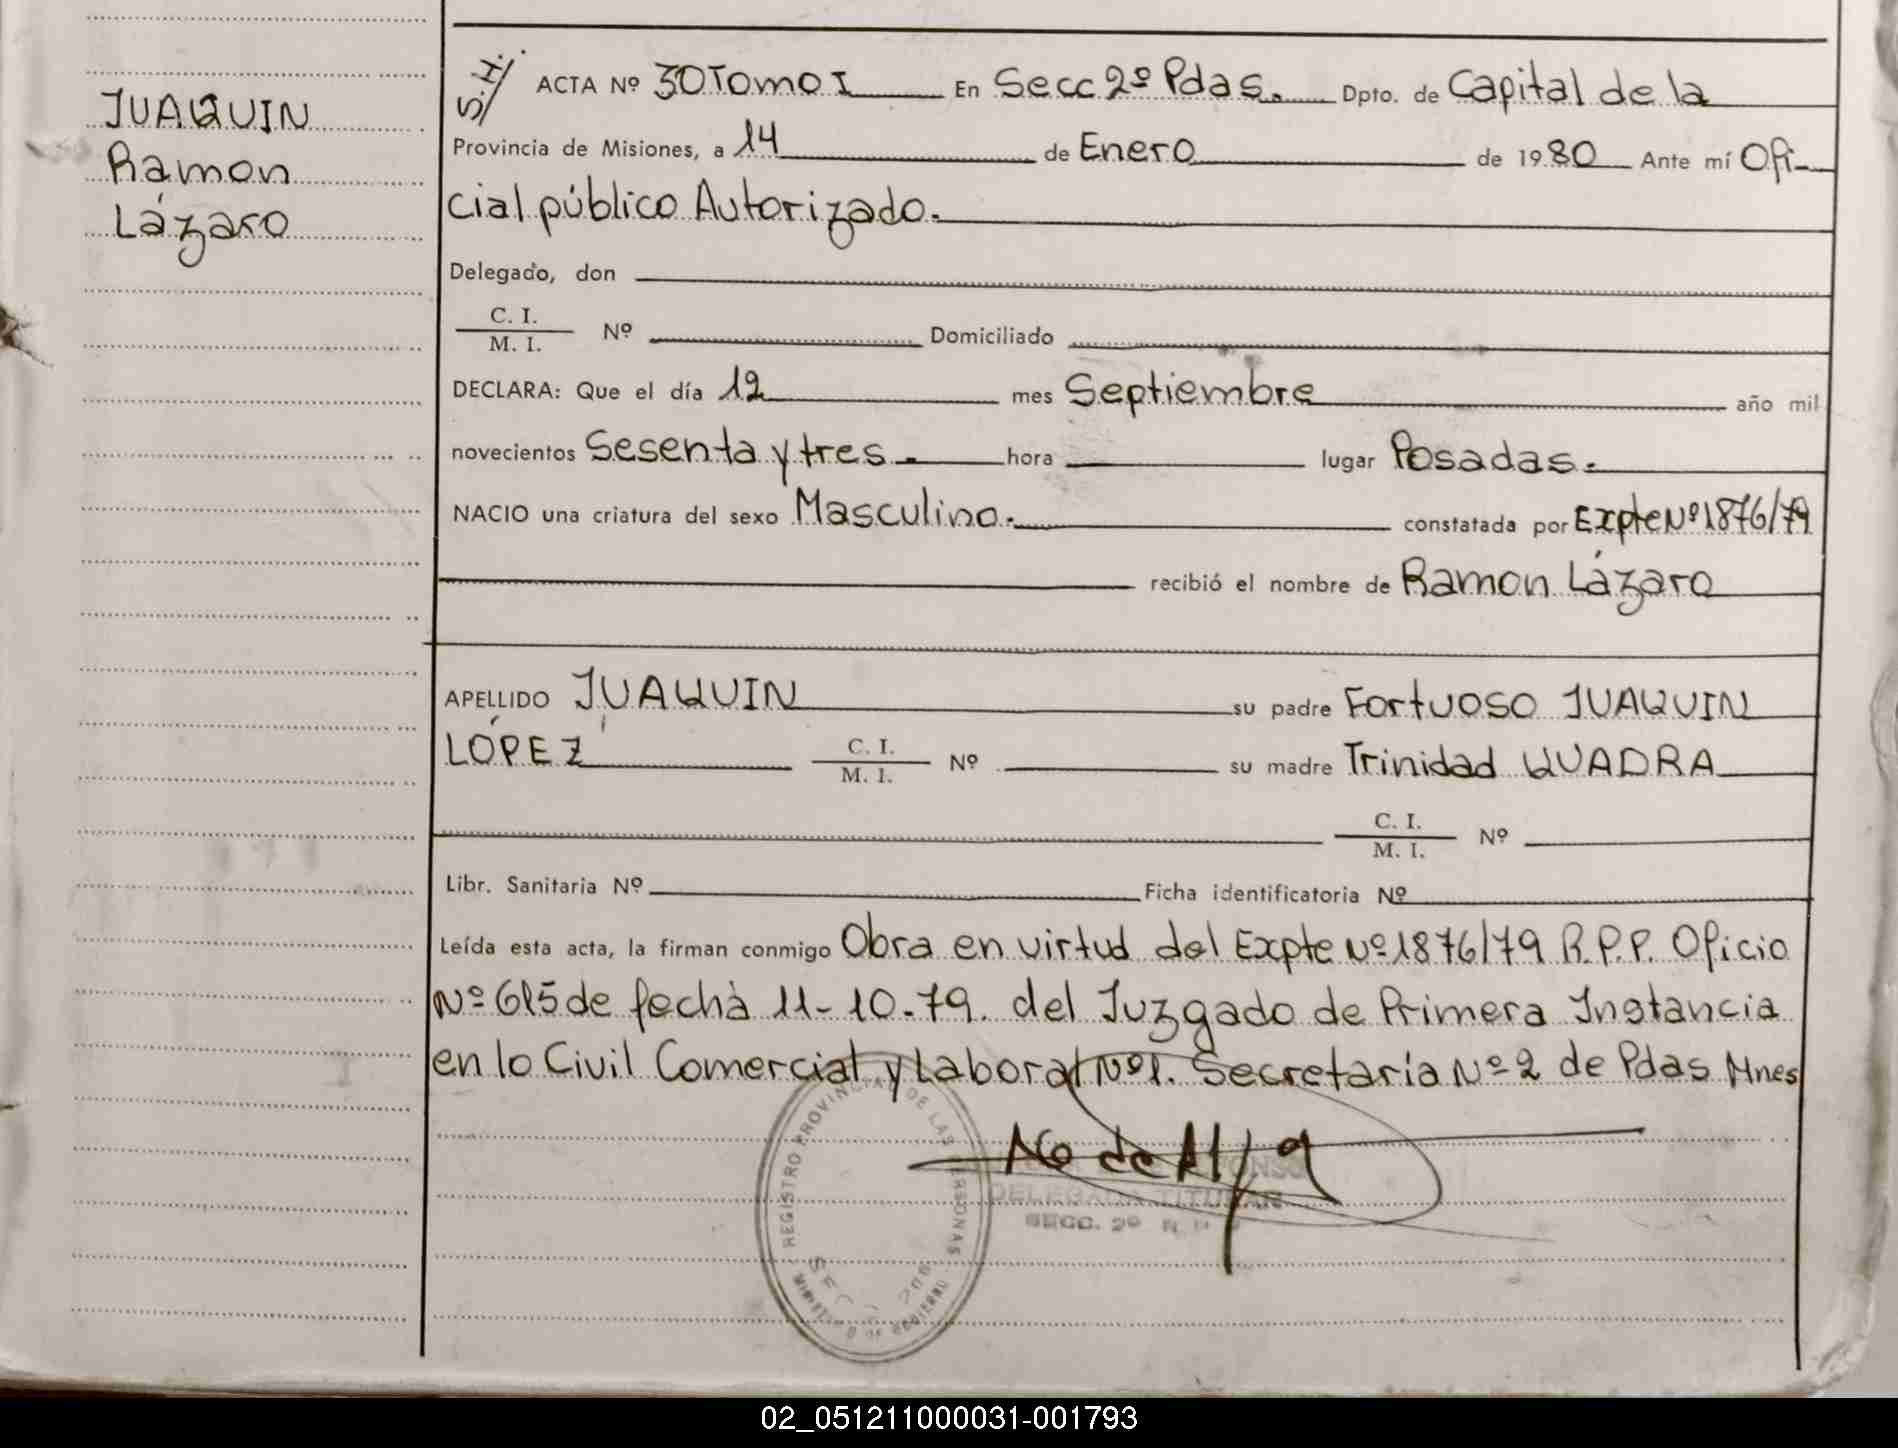 JUAQUIN
Ramon
Lázaro
S.I/ ACTA Nº 30 Tomo I En Secc 2º Pdas. Dpto. de Capital de la
Provincia de Misiones, a 14 de Enero de 1980 Ante mí Ofi-
cial público Autorizado.
Delegado, don
C. I.
M. I. Nº Domiciliado
DECLARA: Que el día 12 mes Septiembre año mil
novecientos Sesenta y tres. hora lugar Posadas.
NACIO una criatura del sexo Masculino. constatada por Expte Nº 1876/79
recibió el nombre de Ramon Lázaro
APELLIDO JUAQUIN su padre Fortuoso JUAQUIN
LÓPEZ C. I. M. I. Nº su madre Trinidad QUADRA
C. I.
M. I. Nº
Libr. Sanitaria Nº Ficha identificatoria Nº
Leída esta acta, la firman conmigo Obra en virtud del Expte Nº 1876/79 R.P.P. Oficio
Nº 615 de fecha 11-10-79. del Juzgado de Primera Instancia
en lo Civil Comercial y Laboral Nº 1. Secretaría Nº 2 de Pdas Mnes
REGISTRO PROVINCIAL DE LAS PERSONAS
DELEGADA TITULAR
SECC. 2º
02_051211000031-001793